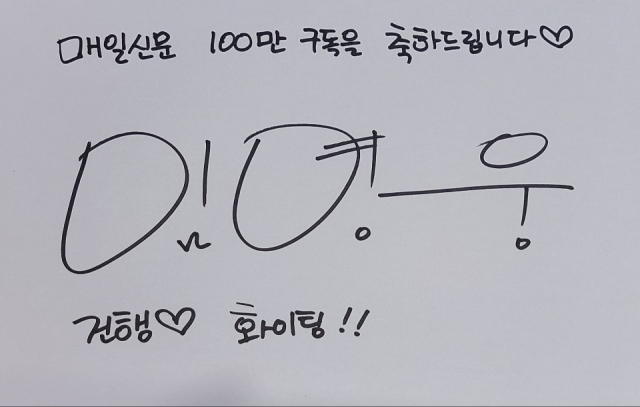 매일신문 100만 구독을 축하드립니다♡
임영웅
건행♡ 화이팅!!